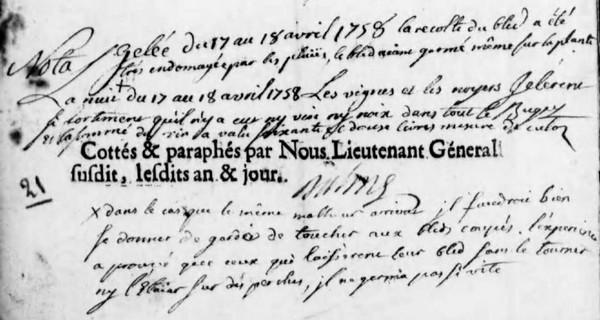 Gelée du 17 au 18 avril 1758 la recolte du bled a été
Nota
très endomagée par les pluiës, le bled aiant germé même sur la plante
La nuit du 17 au 18 avril 1758 Les vignes et les noyers Jelèrent
si fortement quil n'y a eut ny vin ny noix dans tout le Bugey
et la du vin la valu soixante & douse livres mesure de
Cottés & paraphés par Nous Lieutenant Géneral
susdit, lesdits an & jour.
21
x dans le cas que le même malheur arrivat, il faudroit bien
se donner de garde de toucher aux bleds coupés. L'experience
a prouvé que ceux qui laissèrent leur bled sans le tourner
ny sur des perches, il ne germa pas si vite